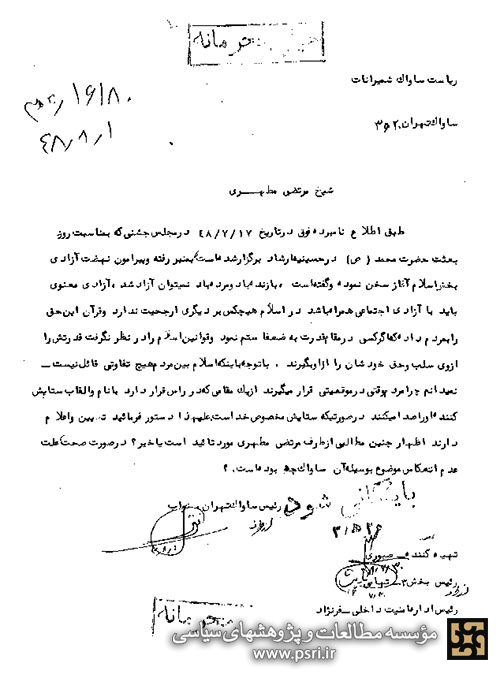 خیلی محرمانه
ریاست ساواک شمیرانات
۱۶۱۸۰
ساواک تهران ۲۰ ه ۳
۴۸/۸/۱
شیخ مرتضی مطهری
طبق اطلاع نامبرده فوق در تاریخ ۴۸/۷/۱۷ در مجلس جشنی که بمناسبت روز
بعثت حضرت محمد (ص) در حسینیه ارشاد برگزار شده است بمنبر رفته و پیرامون نهضت آزادی
بخش اسلام آغاز سخن نموده و گفته است ، با زنده باد و مرده باد نمیتوان آزاد شد ، آزادی معنوی
باید با آزادی اجتماعی همراه باشد در اسلام هیچکس بر دیگری ارجحیت ندارد و قرآن این حق
را بمردم داده که اگر کسی در مقام قدرت به ضعفا ستم نمود و قوانین اسلام را در نظر نگرفت قدرتش را
از وی سلب و حق خودشان را از او بگیرند ، با توجه باینکه اسلام بین مردم هیچ تفاوتی قائل نیست
نمیدانم چرا مردم وقتی در موقعیتی قرار میگیرند از یک مقامی که در راس قرار دارد با نام و القاب ستایش
کننده او را صدا میکنند در صورتیکه ستایش مخصوص خداست علیهذا دستور فرمائید تعیین و اعلام
دارند اظهار چنین مطالبی از طرف مرتضی مطهری مورد تائید است یا خیر ؟ در صورت صحت علت
عدم انعکاس موضوع بوسیله آن ساواک چه بوده است . ؟
بایگانی شود
رئیس ساواک تهران . نواب
تهیه کننده صبوری
رئیس بخش ۳
رئیس اداره امنیت داخلی سفرنژاد
محرمانه
مؤسسه مطالعات و پژوهشهای سیاسی
www.psri.ir